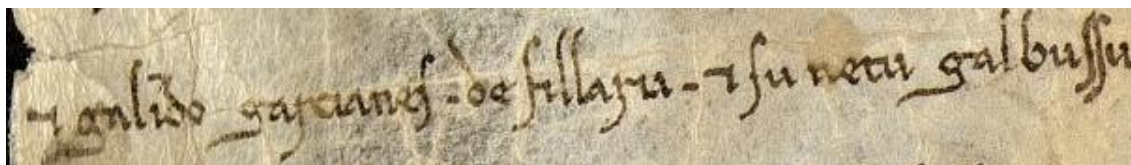 ⁊ galĩdo garcianes · de fillaru · ⁊ su netu galbussu